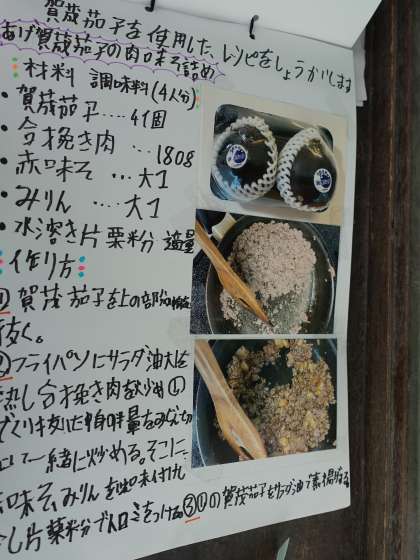 賀茂茄子を使用した、レシピをしょうかいします
あげ賀茂茄子の肉味そ詰め
材料 調味料(4人分)
・賀茂茄子....4個
・合挽き肉 ...180g
・赤味そ ... 大1
・みりん ... 大1
・水溶き片栗粉 適量
作り方
① 賀茂茄子を上の部分
抜く。
②フライパンにサラダ油大1を
熱し合挽き肉を炒め①
でくり抜いた中身半量をみじん切
にして一緒に炒める。そこに
赤味そ、みりんを味付け
し片栗粉でトロミをつける③①の賀茂茄子をサラダ油で素揚げする